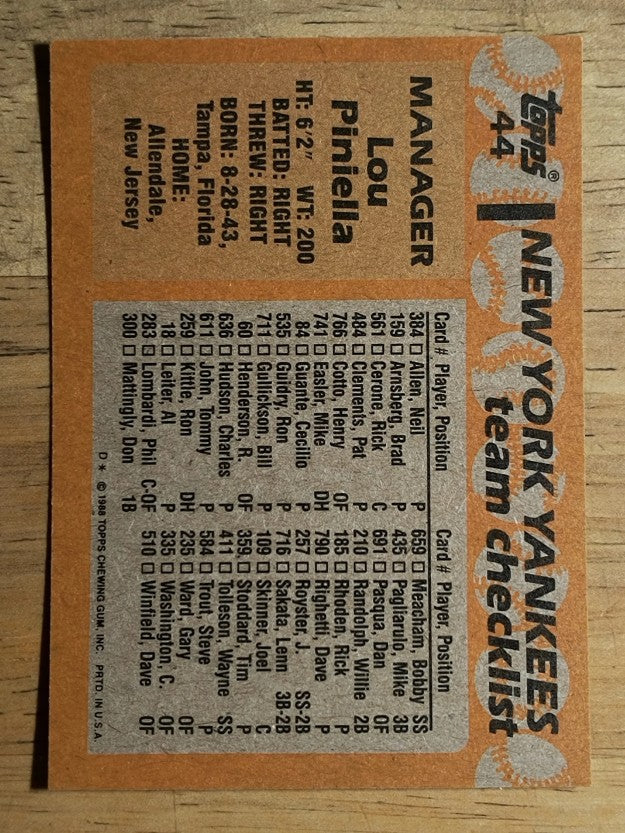 topps®
44
NEW YORK YANKEES
team checklist
MANAGER
Lou
Piniella
HT: 6'2" WT: 200
BATTED: RIGHT
THREW: RIGHT
BORN: 8-28-43,
Tampa, Florida
HOME:
Allendale,
New Jersey
Card # Player, Position
384 □ Allen, Neil P
159 □ Arnsberg, Brad P
561 □ Cerone, Rick C
484 □ Clements, Pat P
766 □ Cotto, Henry OF
741 □ Easler, Mike DH
84 □ Guante, Cecilio P
535 □ Guidry, Ron P
711 □ Gullickson, Bill P
60 □ Henderson, R. OF
636 □ Hudson, Charles P
611 □ John, Tommy P
259 □ Kittle, Ron DH
18 □ Leiter, Al P
283 □ Lombardi, Phil C-OF
300 □ Mattingly, Don 1B
Card # Player, Position
659 □ Meacham, Bobby SS
435 □ Pagliarulo, Mike 3B
691 □ Pasqua, Dan OF
210 □ Randolph, Willie 2B
185 □ Rhoden, Rick P
790 □ Righetti, Dave P
257 □ Royster, J. SS-2B
716 □ Sakata, Lenn 3B-2B
109 □ Skinner, Joel C
359 □ Stoddard, Tim P
411 □ Tolleson, Wayne SS
584 □ Trout, Steve P
235 □ Ward, Gary OF
335 □ Washington, C. OF
510 □ Winfield, Dave OF
D * © 1988 TOPPS CHEWING GUM, INC. PRTD. IN U.S.A.